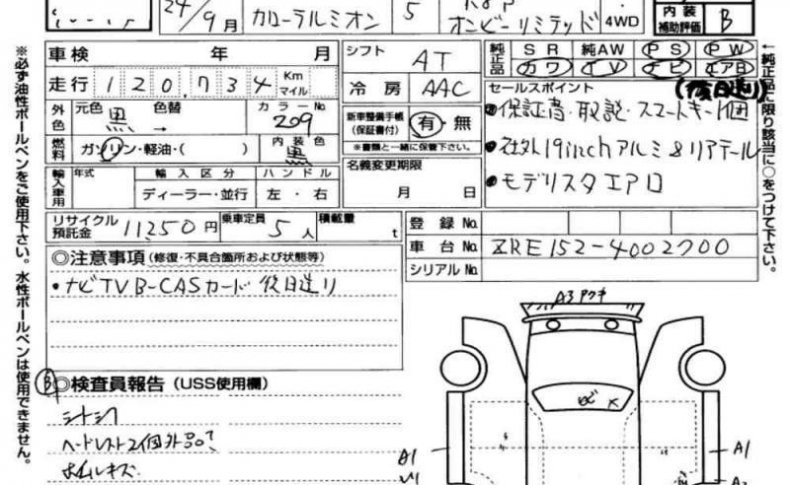 24/9月
カローラルミオン
5
オンビーリミテッド
4WD
内装
補助評価
B
車検 年 月
シフト AT
走行 120,734 Km マイル
冷房 AAC
外色 元色 黒 色替 カラーNo 209
燃料 ガソリン・軽油・( ) 内装色 黒
新車整備手帳(保証書付) 有・無
※書類と一緒に保管下さい。
輸入車用 年式 輸入区分 ハンドル
ディーラー・並行 左・右
名義変更期限
月 日
リサイクル預託金 11,250円 乗車定員 5人 積載量 t
純正品 SR 純AW PS PW
カワ TV ナビ エアB
(後日送り)
セールスポイント
•保証書・取説・スマートキー1個
•社外19inchアルミ&リアテール
•モデリスタエアロ
登録No.
車台No. ZRE152-4002700
シリアルNo.
◎注意事項(修復・不具合箇所および状態等)
•ナビTV B-CASカード後日送り
B
◎検査員報告(USS使用欄)
ヘッドレスト2個外品で
ホイルキズ
A3
A1
A1
※必ず油性ボールペンをご使用下さい。水性ボールペンは使用できません。
←純正品に限り該当に○をつけて下さい。